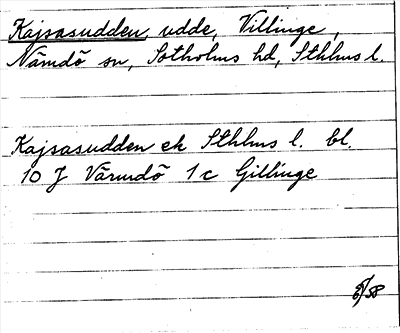 Kajsasudden, udde, Villinge,
Nämdö sn, Sotholms hd, Sthlms l.
Kajsasudden ek Sthlms l. bl.
10 J Värmdö 1c Gillinge
/58